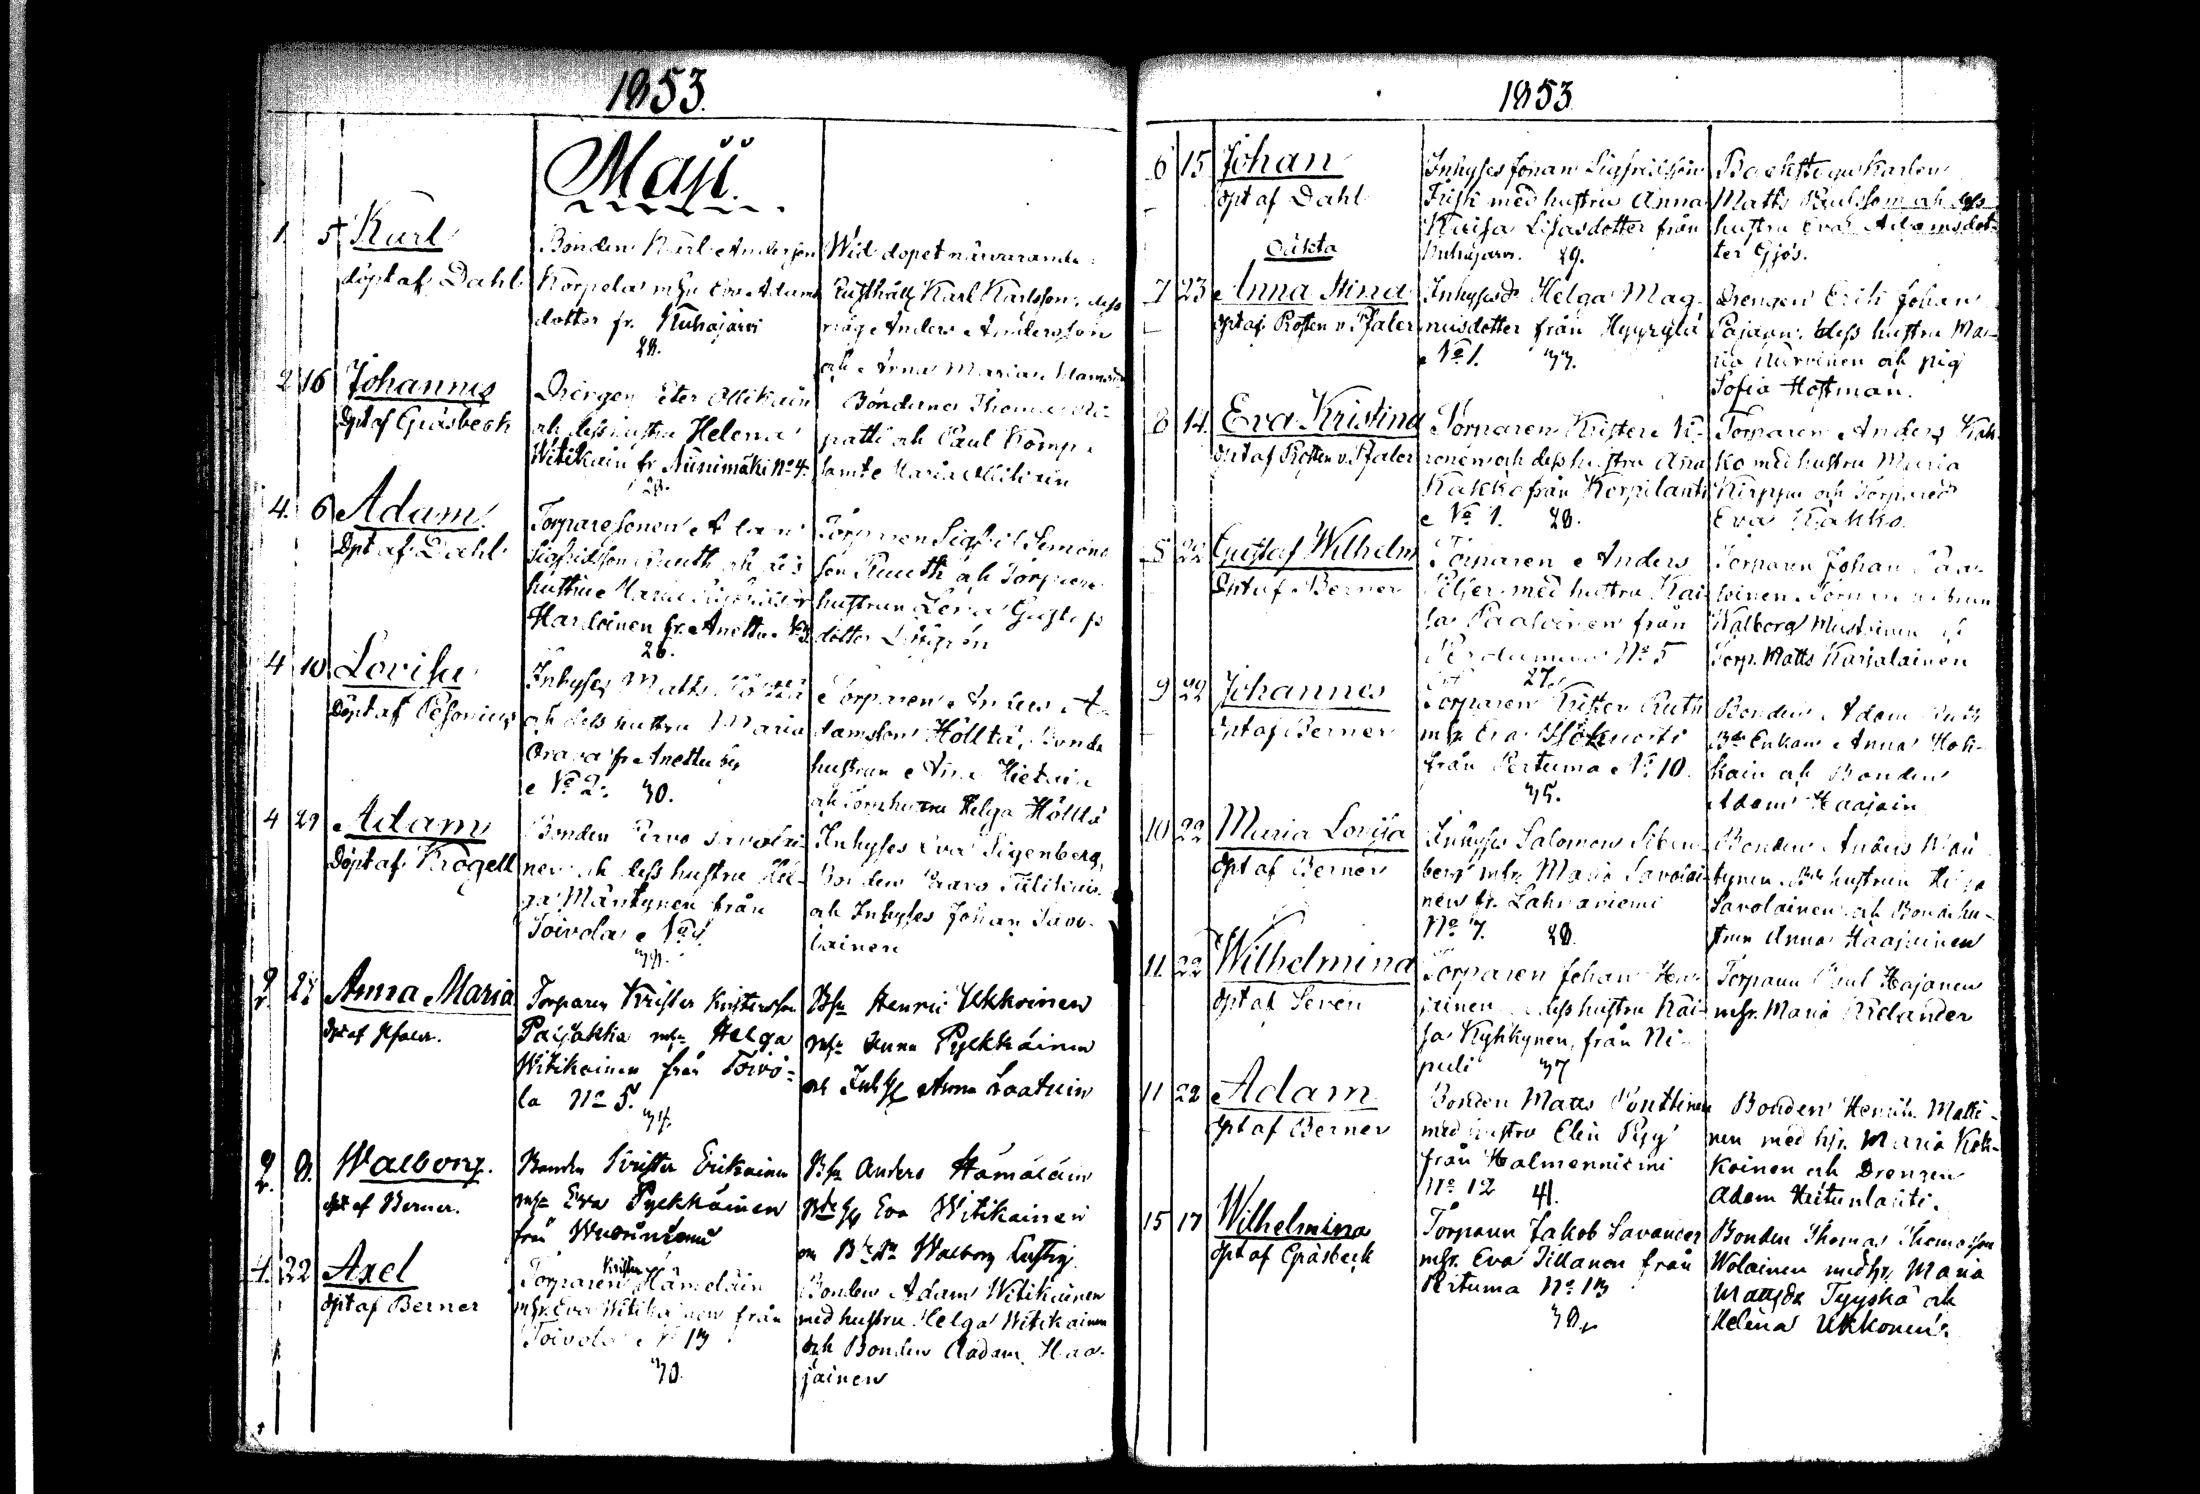 1853.
Maji.
1. 5 Karl
döpt af Dahl
Bonden Karl Andersson
Korpela mhu Eva Adams
dotter fr. Kuhajärvi
28.
Wid dopet närvarande:
Rusthåll Karl Karlsson, dess
måg Anders Andersson
och Anna Maria
2 16 Johannes
Dpt af Gråsbeck
Drängen Peter Ollikain
och dess hustru Helena
Witikain fr. Niinimäki No 4.
28.
Bönderna Thomas
patti och Paul Komp
samt Maria Ollikain
4. 6 Adam
Dpt af Dahl
Torparesonen Adam
Sigfridsson Ruuth och des
hustru Maria
Harloinen fr. Anettu No 3
26.
Torparen Sigfrid Simons
son Ruuth och Torpare
hustrun Lena Gustafs
dotter
4 10 Lovisa
Döpt af Pesonius
Inhyses Matts Hölttä
och dess hustru Maria
Orava fr Anettu by
No 2. 30.
Torparen Anders A
damsson Hölttä, Bonde
hustrun Anna Hietain
och Torp hustru Helga Hölttä
4 29 Adam
Döpt af Krogell
Bonden Paavo Savolai
nen och dess hustru Hel-
ga Mäntynen från
Toivola No 4.
Inhyses Eva Sigenberg,
Bonden Paavo Tulikain
och Inhyses Johan Savo-
lainen
2. 27 Anna Maria
dpt af Pfaler.
Torparen Krister Kristersson
Paljakka mhu Helga
Witikainen från Toivo=
la No 5.
34.
Bdn Henric Ukkoinen
mhu Anna Pylkkäinen
och Inhys Anna Laatuin
2. 8. Walborg.
dpt af Berner.
Bonden Krister Erikainen
mhu Eva Pylkkäinen
från Wuoriniemi
Bdn Anders Hämäläin
Bdehu Eva Witikainen
och Bde Dr Walborg
4. 22 Axel
dpt af Berner
Krister
Torparen Hämäläin
mhu. Eva Witikainen från
Toivola No 13
30.
Bonden Adam Witikainen
med hustru Helga Witikainen
och Bonden Aadam Haa-
jainen
1853
6 15 Johan
dpt af Dahl
Inhyses Johan Sigfridsson
Frisk med hustru Anna
Kaisa Lisasdotter från
Kuhajärvi. 29.
Backstugukarlen
Matts Paulsson och dess
hustru Eva Adamsdot-
ter Gjös.
oäkta
7 23 Anna Stina
dpt af Prosten v. Pfaler
Inhysesd. Helga Mag-
nusdotter från Hyyrylä
No 1. 33.
Drengen Erik Johan
Pajaan. dess hustru Ma-
ria Nurvinen och pig
Sofia Hoffman.
8 14. Eva Kristina
dpt af Prosten v. Pfaler
Torparen Krister K
ronen och dess hustru Anna
Kakko från Korpilanti
No 1. 28.
Torparen Anders Kak
ko med hustru Maria
Kirppu och Torpared
Eva Kakko.
8 22 Gustaf Wilhelm
Dpt af Berner
Torparen Anders
Peljer med hustru Kai
sa Paaloinen från
Pertumaa No 5
27.
Torparen Johan Paa-
loinen Torpare hustrun
Walborg Mustoinen
Torp. Matts Karjalainen
9 22 Johannes
Dpt af Berner
Torparen Krister Ruth
mhu Eva Hökuorti
från Pertuma No 10.
35.
Bonden Adam Ruth
Bde Enkan Anna Hok-
kain och Bonden
Adam Haajain
10 22 Maria Lovisa
dpt af Berner
Inhyses Salomon Siben-
berg mhu Maria Savolai-
nen fr. Lahnaniemi
No 7. 28.
Bonden Anders Män
tynen. Bde hustrun Helga
Savolainen och Bondehu-
strun Anna Haajainen
11 22 Wilhelmina
dpt af Seven
Torparen Johan Haa-
jainen dess hustru Kai-
sa Kykkynen, från Ni-
puli 37
Torparen Paul Hajanen
mhr. Maria Kielander
11 22 Adam
dpt af Berner
Bonden Matts Pynttinen
med hustru Elin Pyy
från Halmenniemi
No 12 41.
Bonden Henrik Matti-
nen med hr. Maria Kok-
koinen och Drengen
Adam Hietunlahti.
15 17 Wilhelmina
dpt af Gråsbeck
Torparen Jakob Savander
mhr. Eva Tillanen från
Pertuma No 13
38.
Bonden Thomas Thomasson
Wolainen med hr. Maria
Mattsdr Tyyskä och
Helena Ukkonen.